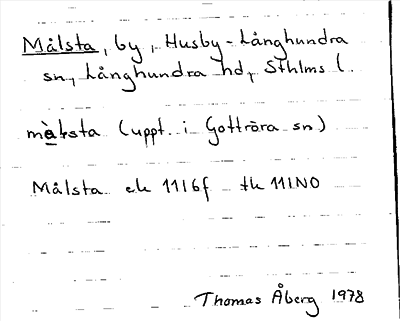 Målsta, by, Husby-Långhundra
sn, Långhundra hd, Sthlms l.
màksta (uppt. i Gottröra sn)
Målsta ek 11I6f tk 11INO
Thomas Åberg 1978